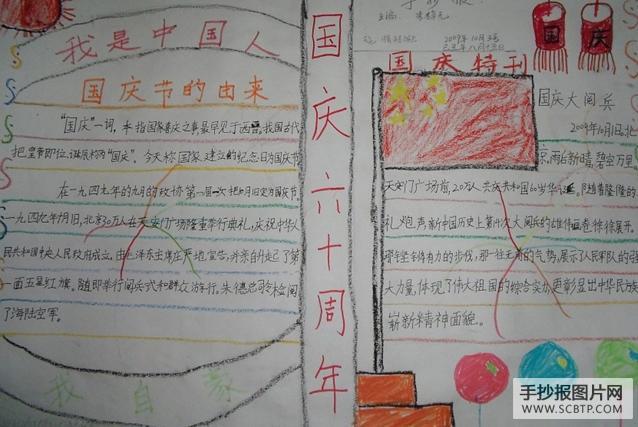 我是中国人
国庆节的由来
"国庆"一词，本指国家喜庆之事最早见于西晋，我国古代
把皇帝即位、诞辰称为"国庆"。今天称国家建立的纪念日为国庆节
在一九四九年的九月的政协第一届一次把十月一日定为国庆节
一九四九年十月一日，北京30万人在天安门广场隆重举行典礼，庆祝中华人
民共和国中央人民政府成立，毛泽东主席庄严地宣告，并亲自升起了第
一面五星红旗。随即举行阅兵式和群众游行，朱德总司令检阅
了海陆空军。
我自豪
国庆六十周年
手抄报
主编：
2009年10月
国庆特刊
国庆
国庆大阅兵
2009年10月1日，北
京，雨后新晴，碧空万里
天安门广场前，20万人共庆共和国60岁华诞。随着隆隆的
礼炮声，新中国历史上第14次大阅兵的雄伟画卷徐徐展开。
那铿锵有力的步伐，那一往无前的气势，展示了人民军队的强
大力量，体现了伟大祖国的综合实力，更彰显出中华民族
崭新精神面貌。
手抄报图片网
WWW.SCBTP.COM